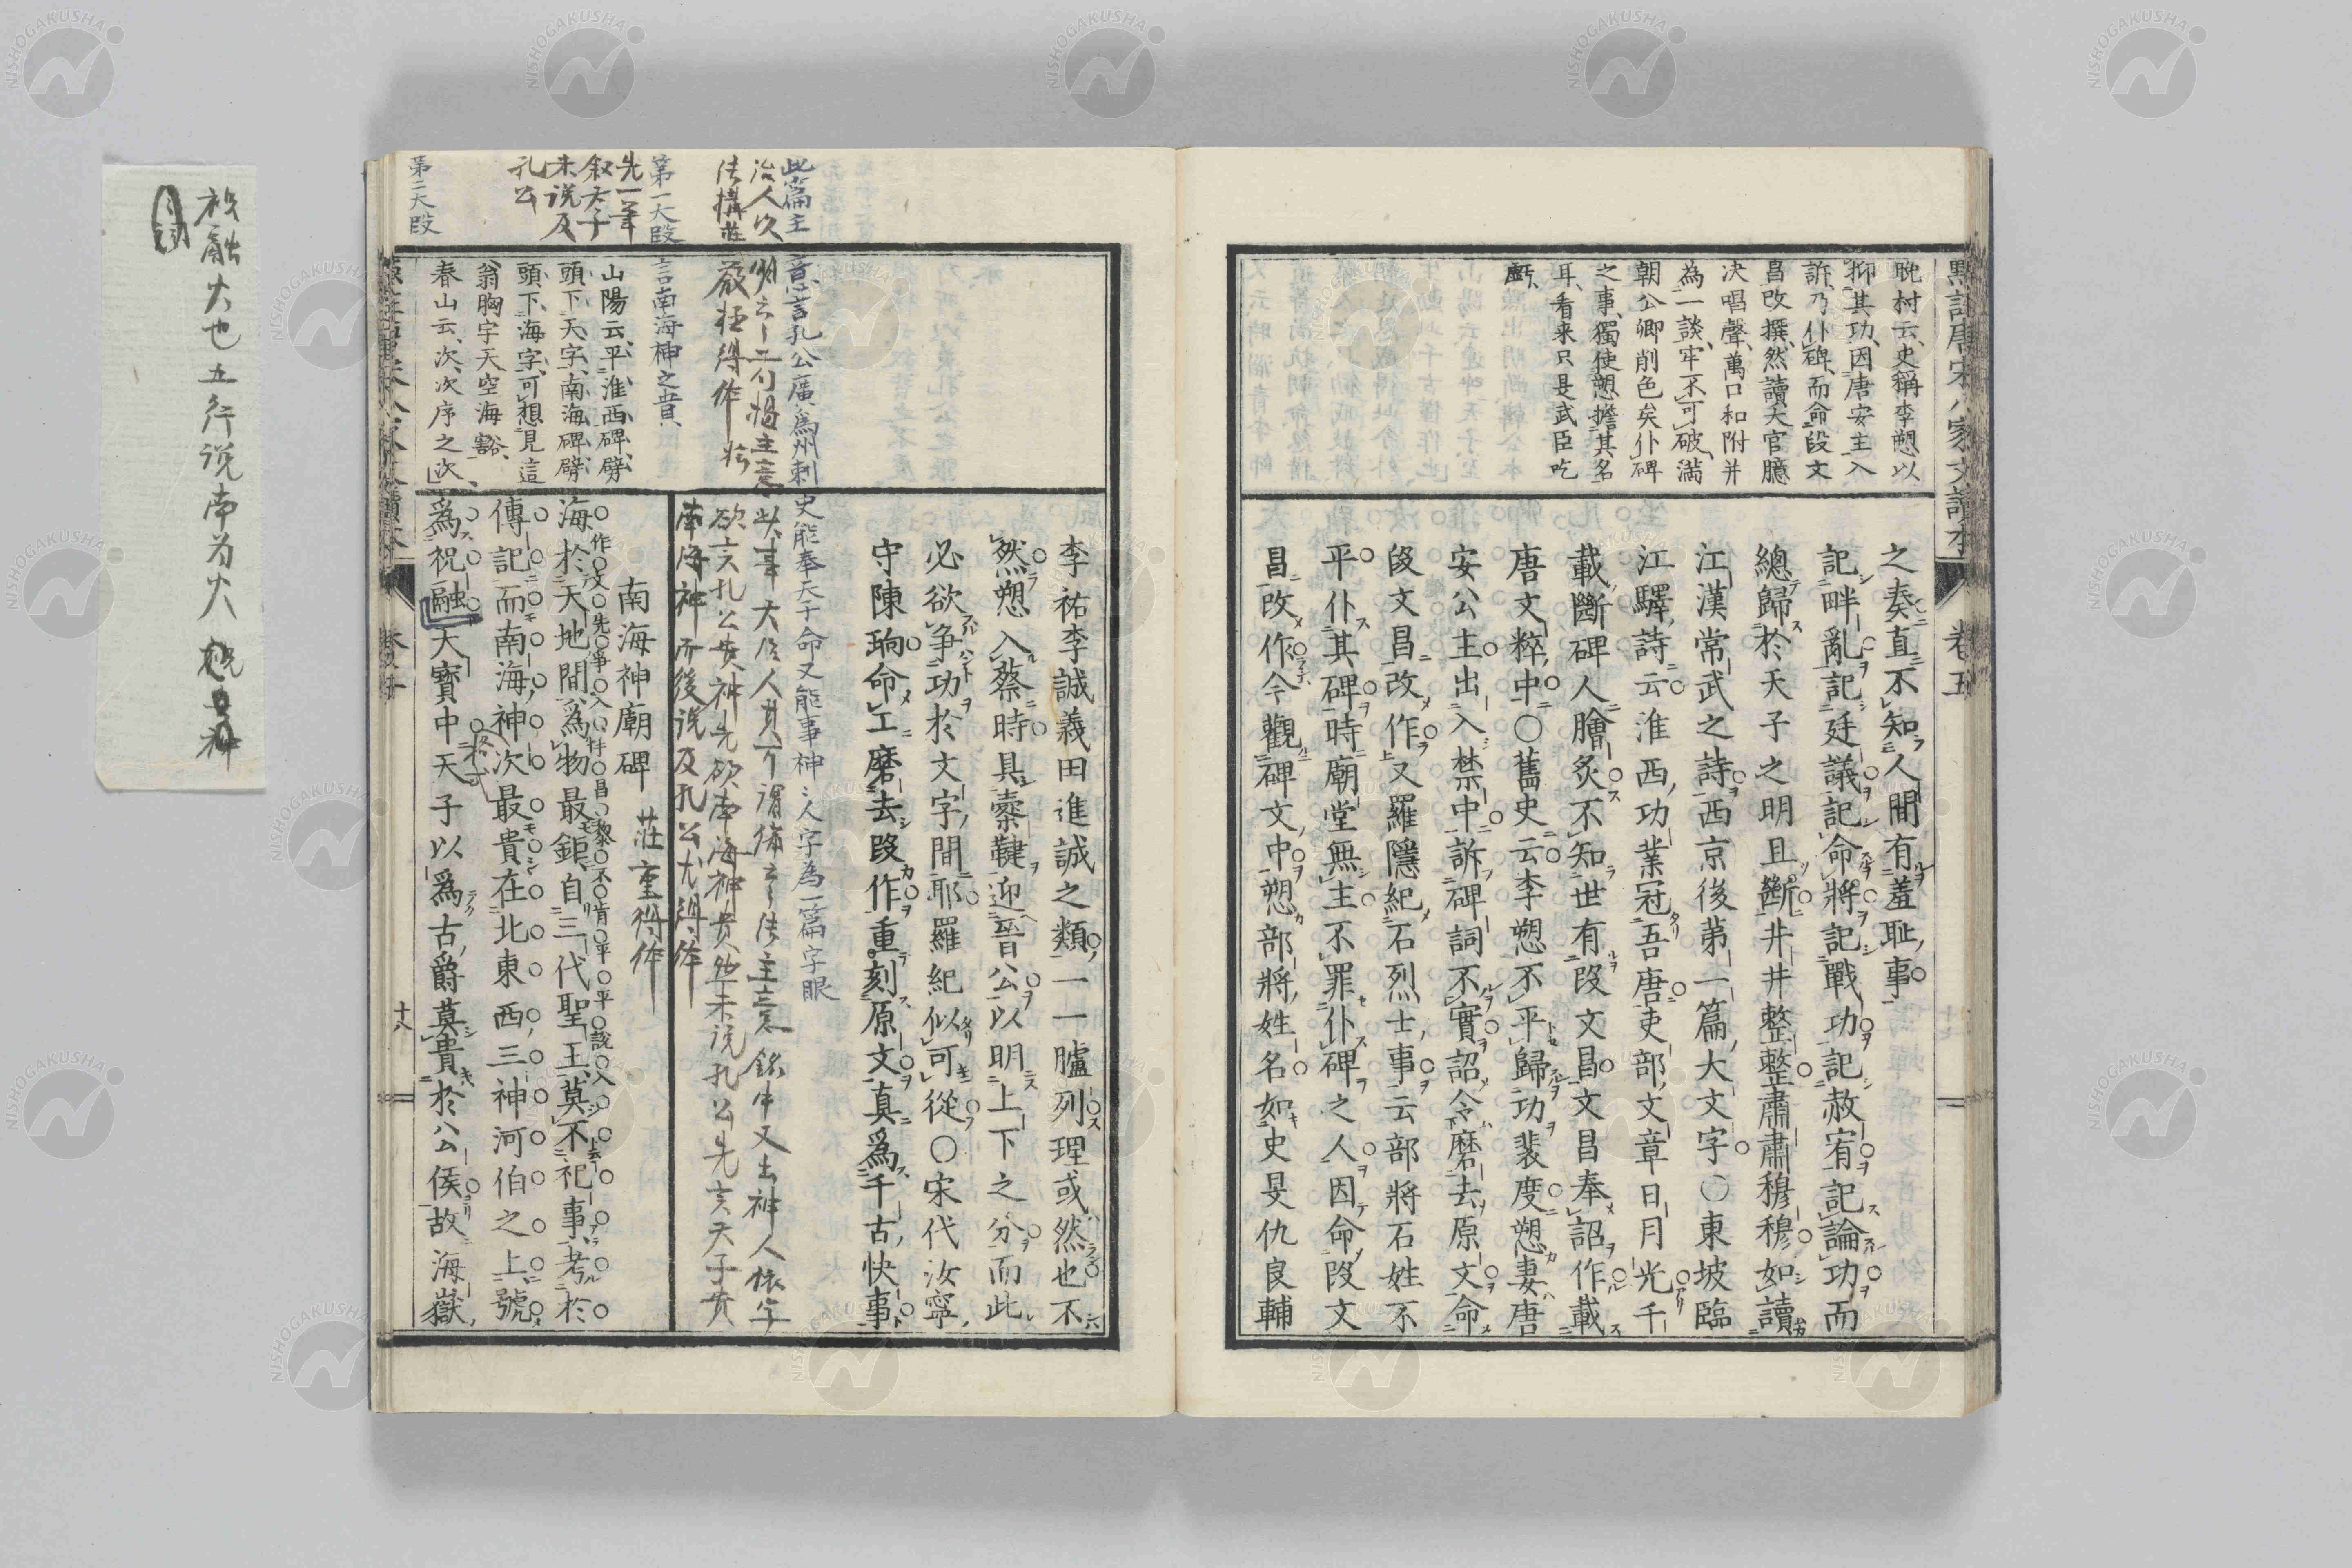 點註唐宋八家文讀本
卷五
晩村云、史稱李愬以
抑其功、因唐安主入
訴、乃仆碑、而命段文
昌改撰、然讀天官臆
决唱聲、萬口和附并
為一談、牢不可破、滿
朝公卿削色矣、仆碑
之事、獨使愬擔其名
耳、看来只是武臣吃
虧
之奏直不知人間有羞耻事
記畔亂記廷議記命將記戰功記赦宥記論功而
總歸於天子之明且斷井井整整肅肅穆穆如讀
江漢常武之詩西京後第一篇大文字〇東坡臨
江驛詩云淮西功業冠吾唐吏部文章日月光千
載斷碑人膾炙不知世有段文昌文昌奉詔作載
唐文粹中〇舊史云李愬不平歸功裴度愬妻唐
安公主出入禁中訴碑詞不實詔令磨去原文命
段文昌改作又羅隱紀石烈士事云部將石姓不
平仆其碑時廟堂無主不罪仆碑之人因命段文
昌改作今觀碑文中愬部將姓名如史旻仇良輔
李祐李誠義田進誠之類一一臚列理或然也不
然愬入蔡時具櫜鞬迎晉公以明上下之分而此
必欲爭功於文字間耶羅紀似可從〇宋代汝寧
守陳珦命工磨去段作重刻原文真爲千古快事
此篇主意言孔公廣爲州刺史能奉天子命又能事神神人字為一篇字眼
南海神而後説及孔公尤得体
第一大段言南海神之貴
先一筆
叙天子
未説及
孔公
第二大段
山陽云、平淮西碑、劈
頭下天字、南海碑、劈
頭下海字、可想見這
翁胸字天空海豁、
春山云、次、次序之次、
南海神廟碑 莊重得体
海於天地間爲物最鉅自三代聖王莫不祀事考於
作文先爭入手昌黎不肯平平説入
傳記而南海神次最貴在北東西三神河伯之上號
爲祝融天寶中天子以爲古爵莫貴於公侯故海嶽
十八
祝融火也五行説南为火 祝神